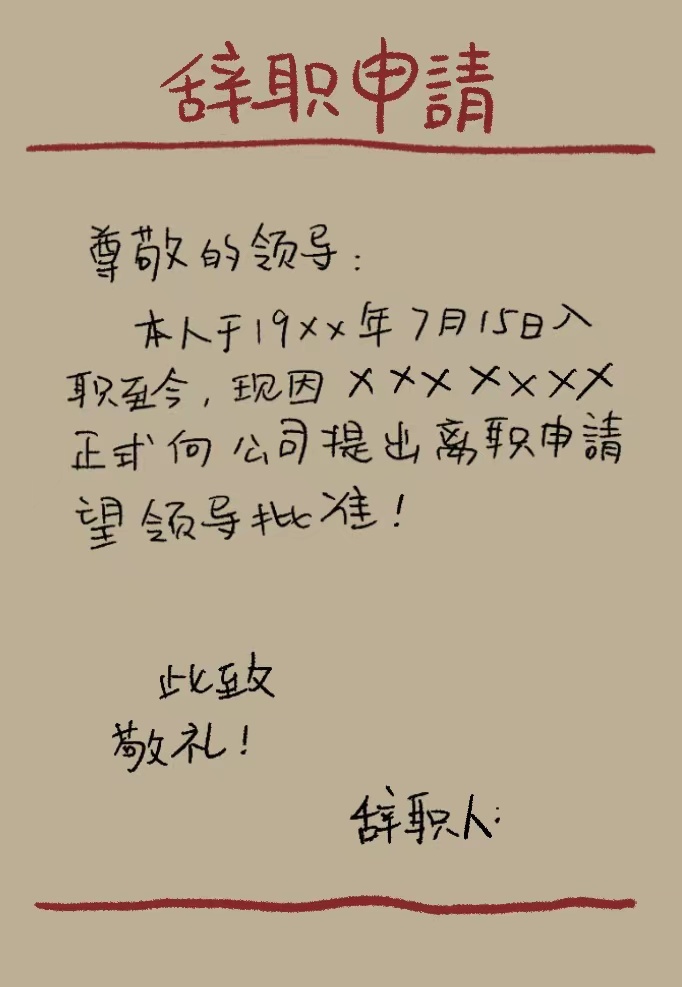 辞职申請
尊敬的领导：
本人于19xx年7月15日入
职至今，现因XXXXXXX
正式向公司提出离职申請
望领导批准！
此致
敬礼！
辞职人：